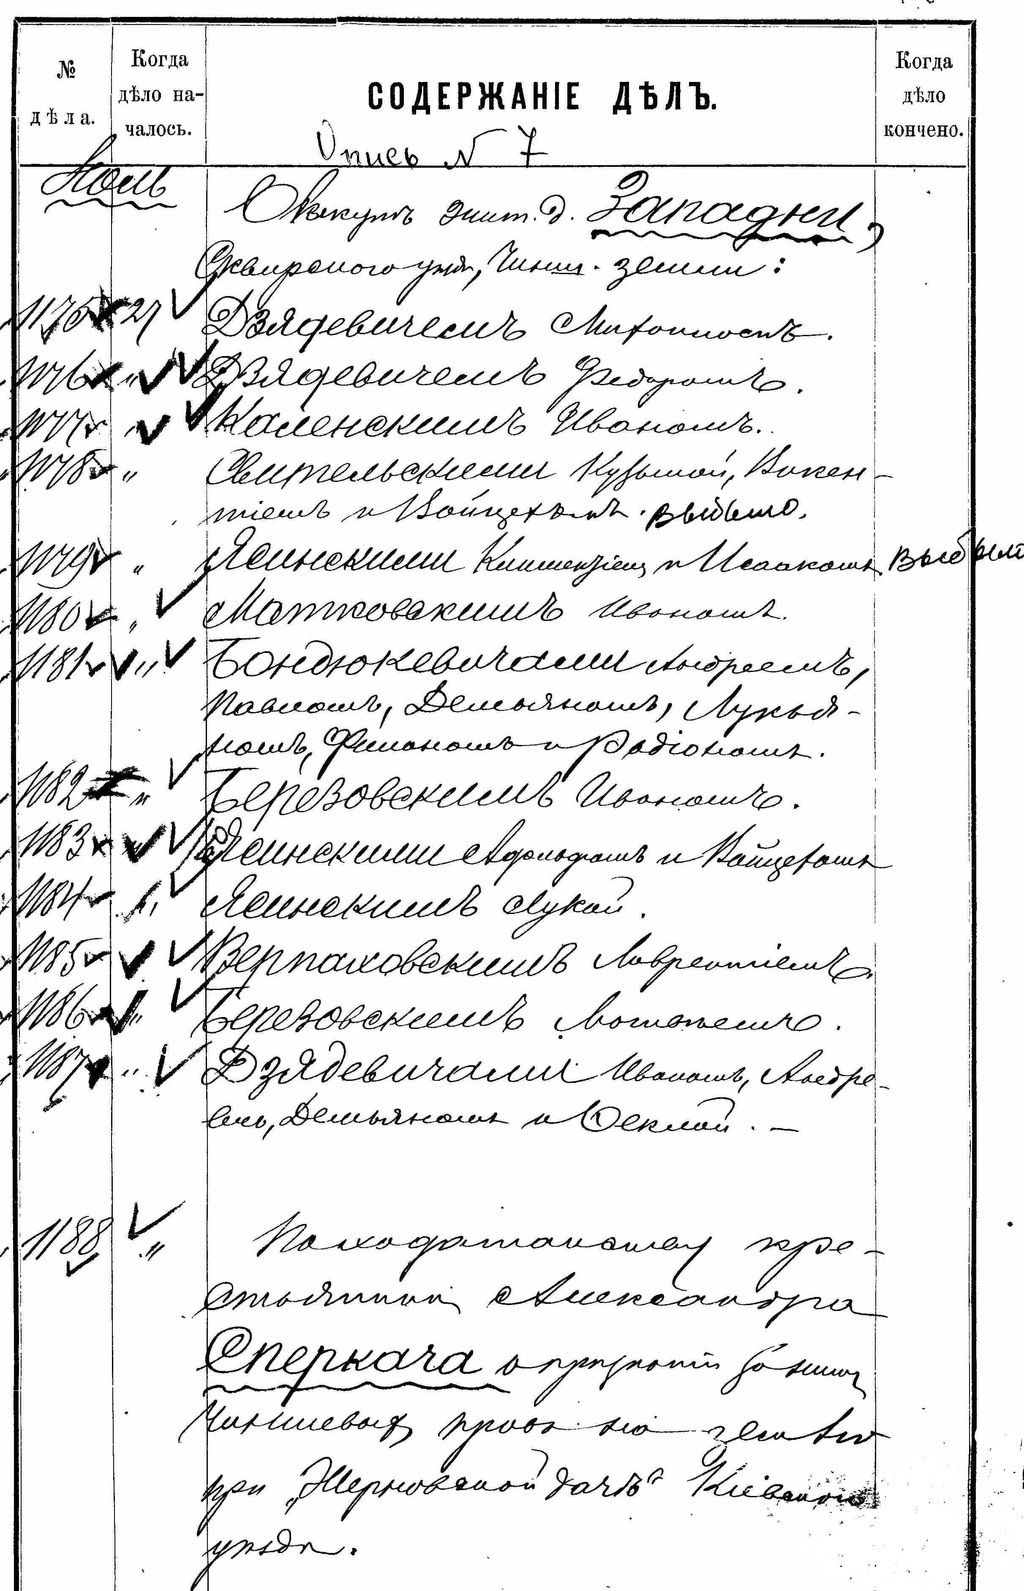 № дѣла.
Когда дѣло началось.
СОДЕРЖАНІЕ ДѢЛЪ.
Когда дѣло кончено.
Опись N 7
жит. д. Западни,
Сквирского уѣзд, Чинш. земли:
1175 27 Дзядевичемъ
1176 " Дзядевичемъ Федоромъ.
1177 " Каленскимъ Иваномъ.
1178 " Свительскими Кузьмой, Викен-
тіемъ и Войцехомъ. выбыло.
1179 " Ясинскими и Исаакомъ выбыло
1180 " Матковскимъ Иваномъ.
1181 " Бондюкевичами Андреемъ,
Павломъ, Демьяномъ, Лукья-
номъ, Филономъ и Родіономъ.
1182 " Березовскимъ Иваномъ.
1183 " Ясинскими Адольфомъ и Войцехомъ
1184 " Ясинскимъ Лукой.
1185 " Верпаховскимъ Лаврентіемъ.
1186 " Березовскимъ
1187 " Дзядевичами Иваномъ, Андре-
емъ, Демьяномъ и Феклой. —
1188 " По ходатайству кре-
стьянина Александра
Сперкача о признаніи за нимъ
Чиншевыхъ правъ на землю
при „Жерновской дачѣ" Кіевского
уѣзда.